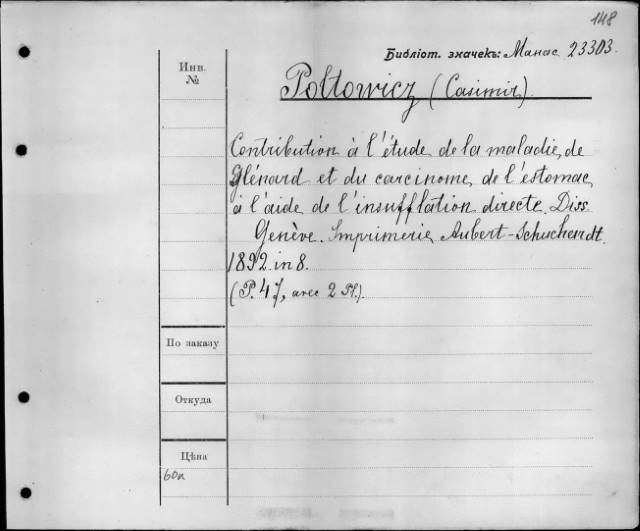 148
Библіот. значекъ: Манас. 23303.
Инв.
№
Poltowicz (Casimir).
Contribution à l'étude de la maladie de
Glénard et du carcinome de l'estomac
à l'aide de l'insufflation directe. Diss.
Genève. Imprimerie Aubert-Schuchardt.
1892. in 8.
(P. 47, avec 2 Pl.).
По заказу
Откуда
Цѣна
60к